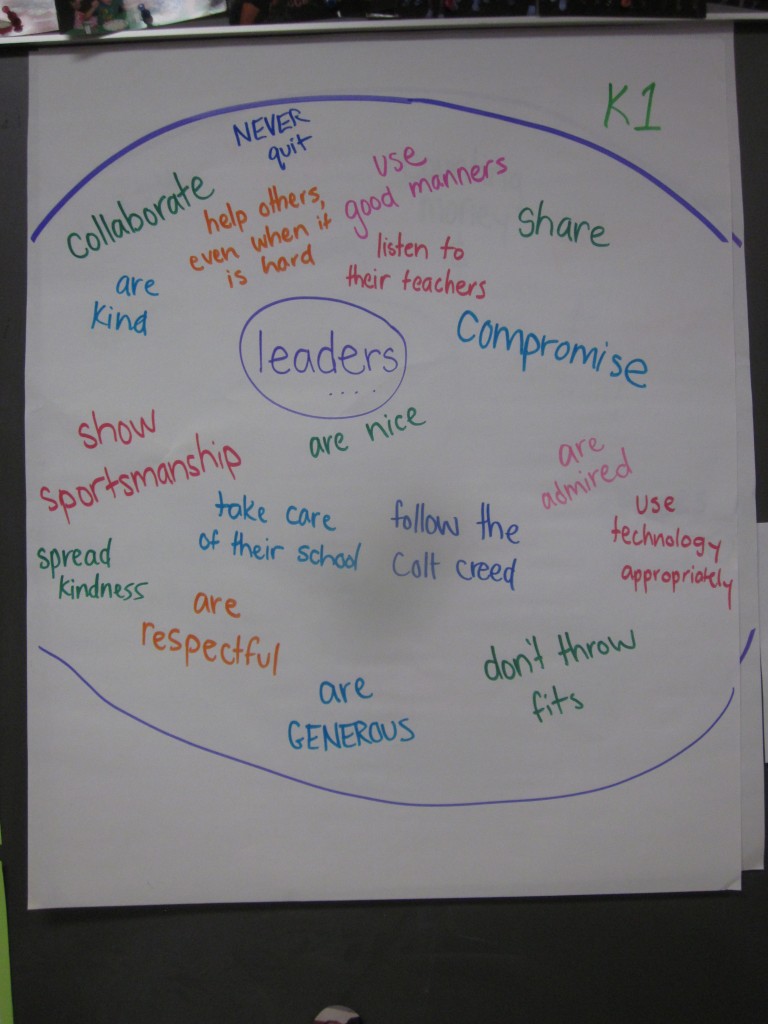 K1
NEVER
quit
collaborate
help others,
even when it
is hard
use
good manners
share
listen to
their teachers
are
kind
leaders
....
compromise
show
sportsmanship
are nice
are
admired
use
technology
appropriately
take care
of their school
follow the
Colt creed
spread
kindness
are
respectful
don't throw
fits
are
GENEROUS